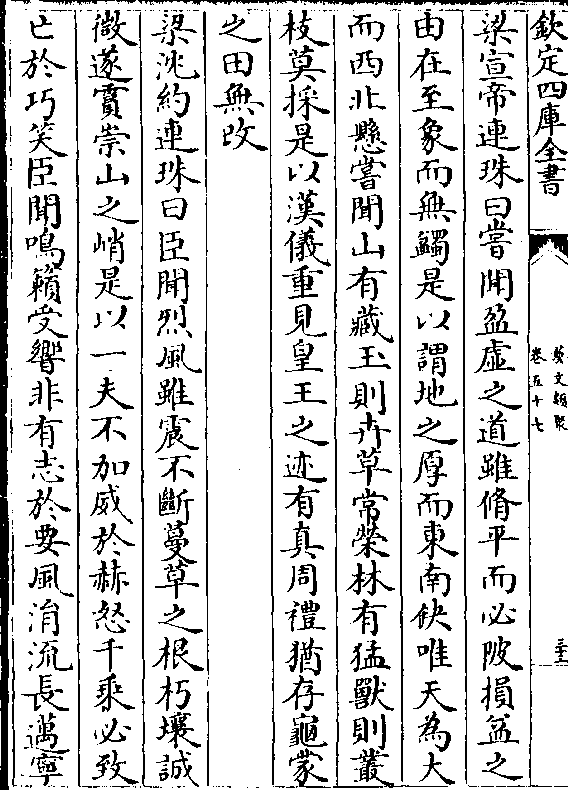 欽定四庫全書
藝文類聚
卷五十七
三十三
梁宣帝連珠曰嘗聞盈虛之道雖脩平而必陂損益之
由在至象而無觸是以謂地之厚而東南缺唯天為大
而西北懸嘗聞山有藏玉則卉草常榮林有猛獸則叢
枝莫採是以漢儀重見皇王之迹有真周禮猶存龜蒙
之田無改
梁沈約連珠曰臣聞烈風雖震不斷蔓草之根朽壤誠
微遂霣崇山之峭是以一夫不加威於赫怒千乘必致
亡於巧笑臣聞鳴籟受響非有志於要風涓流長邁寧